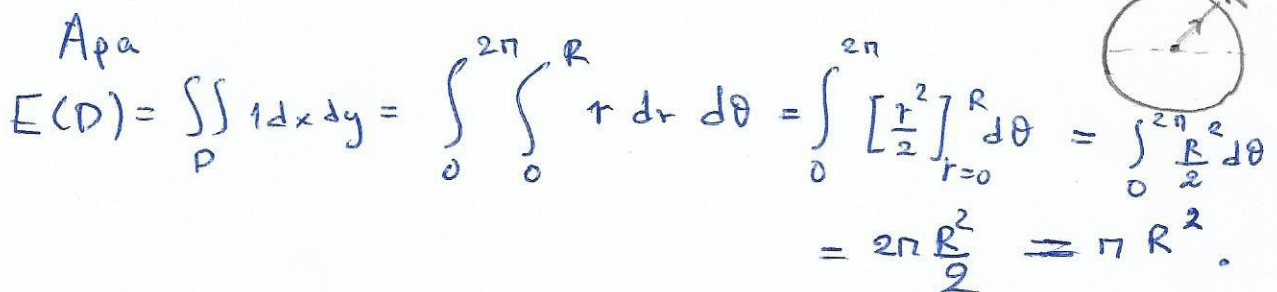 Άρα
E(D) = ∫∫_D 1 dx dy = ∫_0^{2π} ∫_0^R r dr dθ = ∫_0^{2π} [r²/2]_{r=0}^R dθ = ∫_0^{2π} R²/2 dθ
= 2π R²/2 = π R².